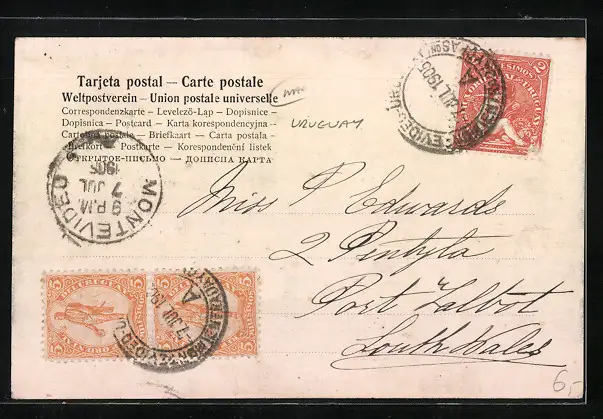 Tarjeta postal — Carte postale
Weltpostverein – Union postale universelle
Correspondenzkarte – Levelező-Lap – Dopisnice –
Dopisnica – Postcard – Karta korespondencyjna –
Cartolina postale – Briefkaart – Carta postala –
Brefkort – Postkarte – Korespondenční listek
ОТКРЫТОЕ-ПИСЬМО – ДОПИСНА КАРТА
URUGUAY
MONTEVIDEO
9 P.M.
7 JUL
1905
2
5 5
5 5
Miss P Edwards
2 Pentyla
Port Talbot
South Wales
6,-